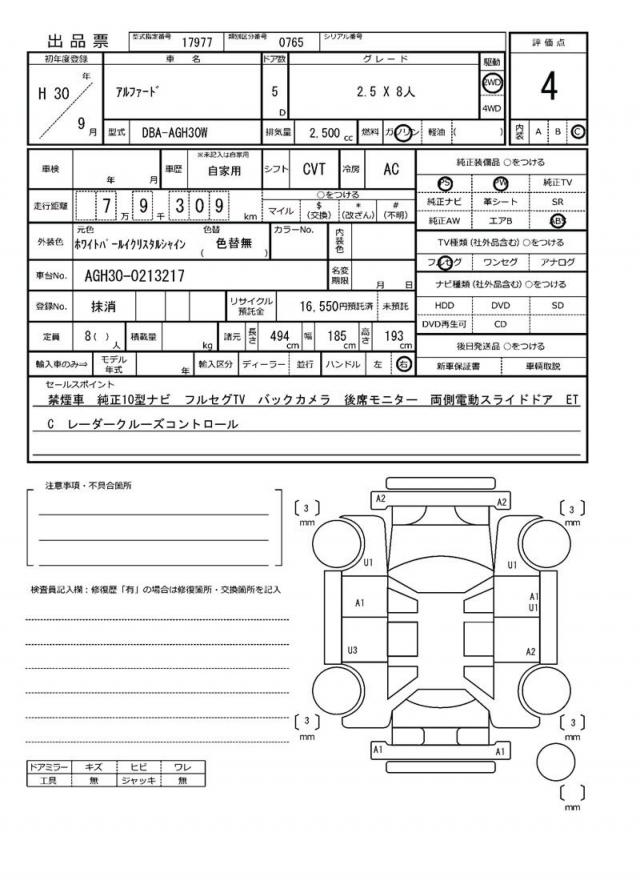 出品票 型式指定番号 17977 類別区分番号 0765 シリアル番号
評価点
4
内装 A B C
初年度登録 車名 ドア数 グレード 駆動
H 30 年 9 月
アルファード 5 D 2.5 X 8人 2WD 4WD
型式 DBA-AGH30W 排気量 2,500 cc 燃料 ガソリン 軽油 ( )
車検 年 月 車歴 ※未記入は自家用 自家用 シフト CVT 冷房 AC
走行距離 7 万 9 千 3 0 9 km
○をつける
マイル $ (交換) * (改ざん) # (不明)
外装色 元色 ホワイトパールイクリスタルシャイン 色替 ( 色替無 ) カラーNo. 内装色
車台No. AGH30-0213217 名変期限 月 日
登録No. 抹消 リサイクル預託金 16,550円預託済 未預託
定員 8( ) 人 積載量 kg 諸元 長さ 494 cm 幅 185 cm 高さ 193 cm
輸入車のみ⇒ モデル年式 年 輸入区分 ディーラー 並行 ハンドル 左 右
純正装備品 ○をつける
PS PW 純正TV
純正ナビ 革シート SR
純正AW エアB ABS
TV種類(社外品含む)○をつける
フルセグ ワンセグ アナログ
ナビ種類(社外品含む)○をつける
HDD DVD SD
DVD再生可 CD
後日発送品 ○をつける
新車保証書 車輌取説
セールスポイント
禁煙車 純正10型ナビ フルセグTV バックカメラ 後席モニター 両側電動スライドドア ET
C レーダークルーズコントロール
注意事項・不具合箇所
検査員記入欄:修復歴「有」の場合は修復箇所・交換箇所を記入
ドアミラー キズ ヒビ ワレ
工具 無 ジャッキ 無
A2 A2
3 mm 3 mm
U1 U1
A1 A1
U1
U3 A2
3 mm 3 mm
A1 A1
mm